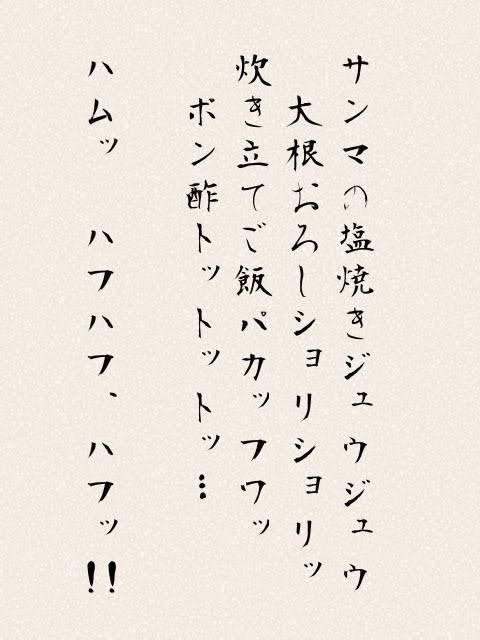 サンマの塩焼きジュウジュウ
大根おろしショリショリッ
炊き立てご飯パカッフワッ
ポン酢トットットッ…
ハムッ　ハフハフ、ハフッ!!